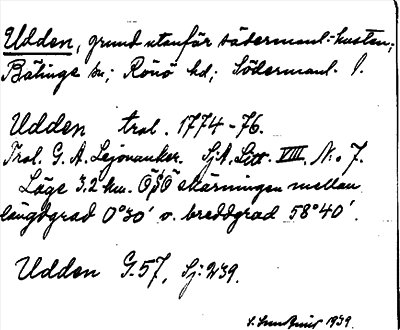 Udden, grund utanför södermanl.-kusten;
Bälinge sn; Rönö hd; Södermanl. l.
Udden trol. 1774-76.
Trol. G. A. Lejonanker. SjA, Litt. VIII, N:o 7.
Läge 3.2 km. ÖSÖ skärningen mellan
längdgrad 0°30' o. breddgrad 58°40'.
Udden G-57, Sj: 239.
1939.